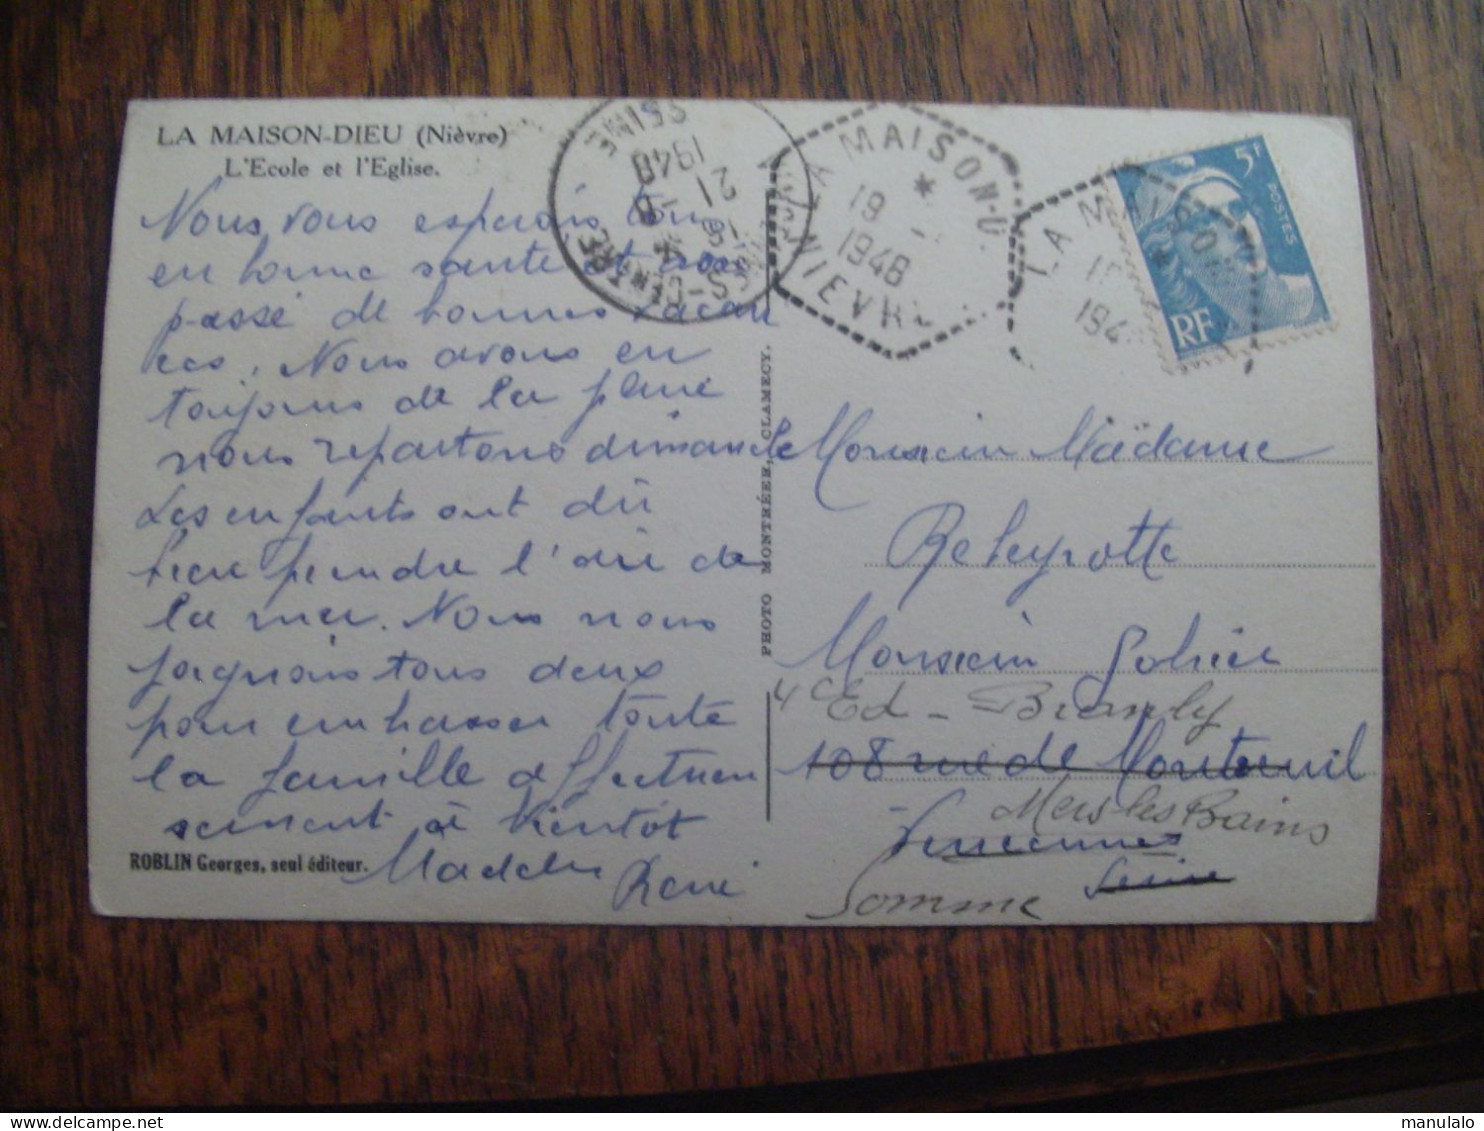 LA MAISON-DIEU (Nièvre)
L'Ecole et l'Eglise.
Nous vous esperons tous
en bonne santé et avoir
passé de bonnes vacan
ces. Nous avons eu
toujours de la pluie
nous repartons dimanche
Les enfants ont dû
bien prendre l'air de
la mer. Nous nous
joignons tous deux
pour embrasser toute
la famille affectueu
sement à bientôt
René
ROBLIN Georges, seul éditeur.
PHOTO MONTRÉER, CLAMECY.
1948
21
CENTRE
LA MAISON-D
19
1948
NIEVRE
LA MAISON
194
5F
POSTES
RF
Monsieur Madame
Releyrotte
Monsieur Gohier
Ed - Branly
108 rue de Montreuil
Mers les Bains
Vincennes
Seine
Somme